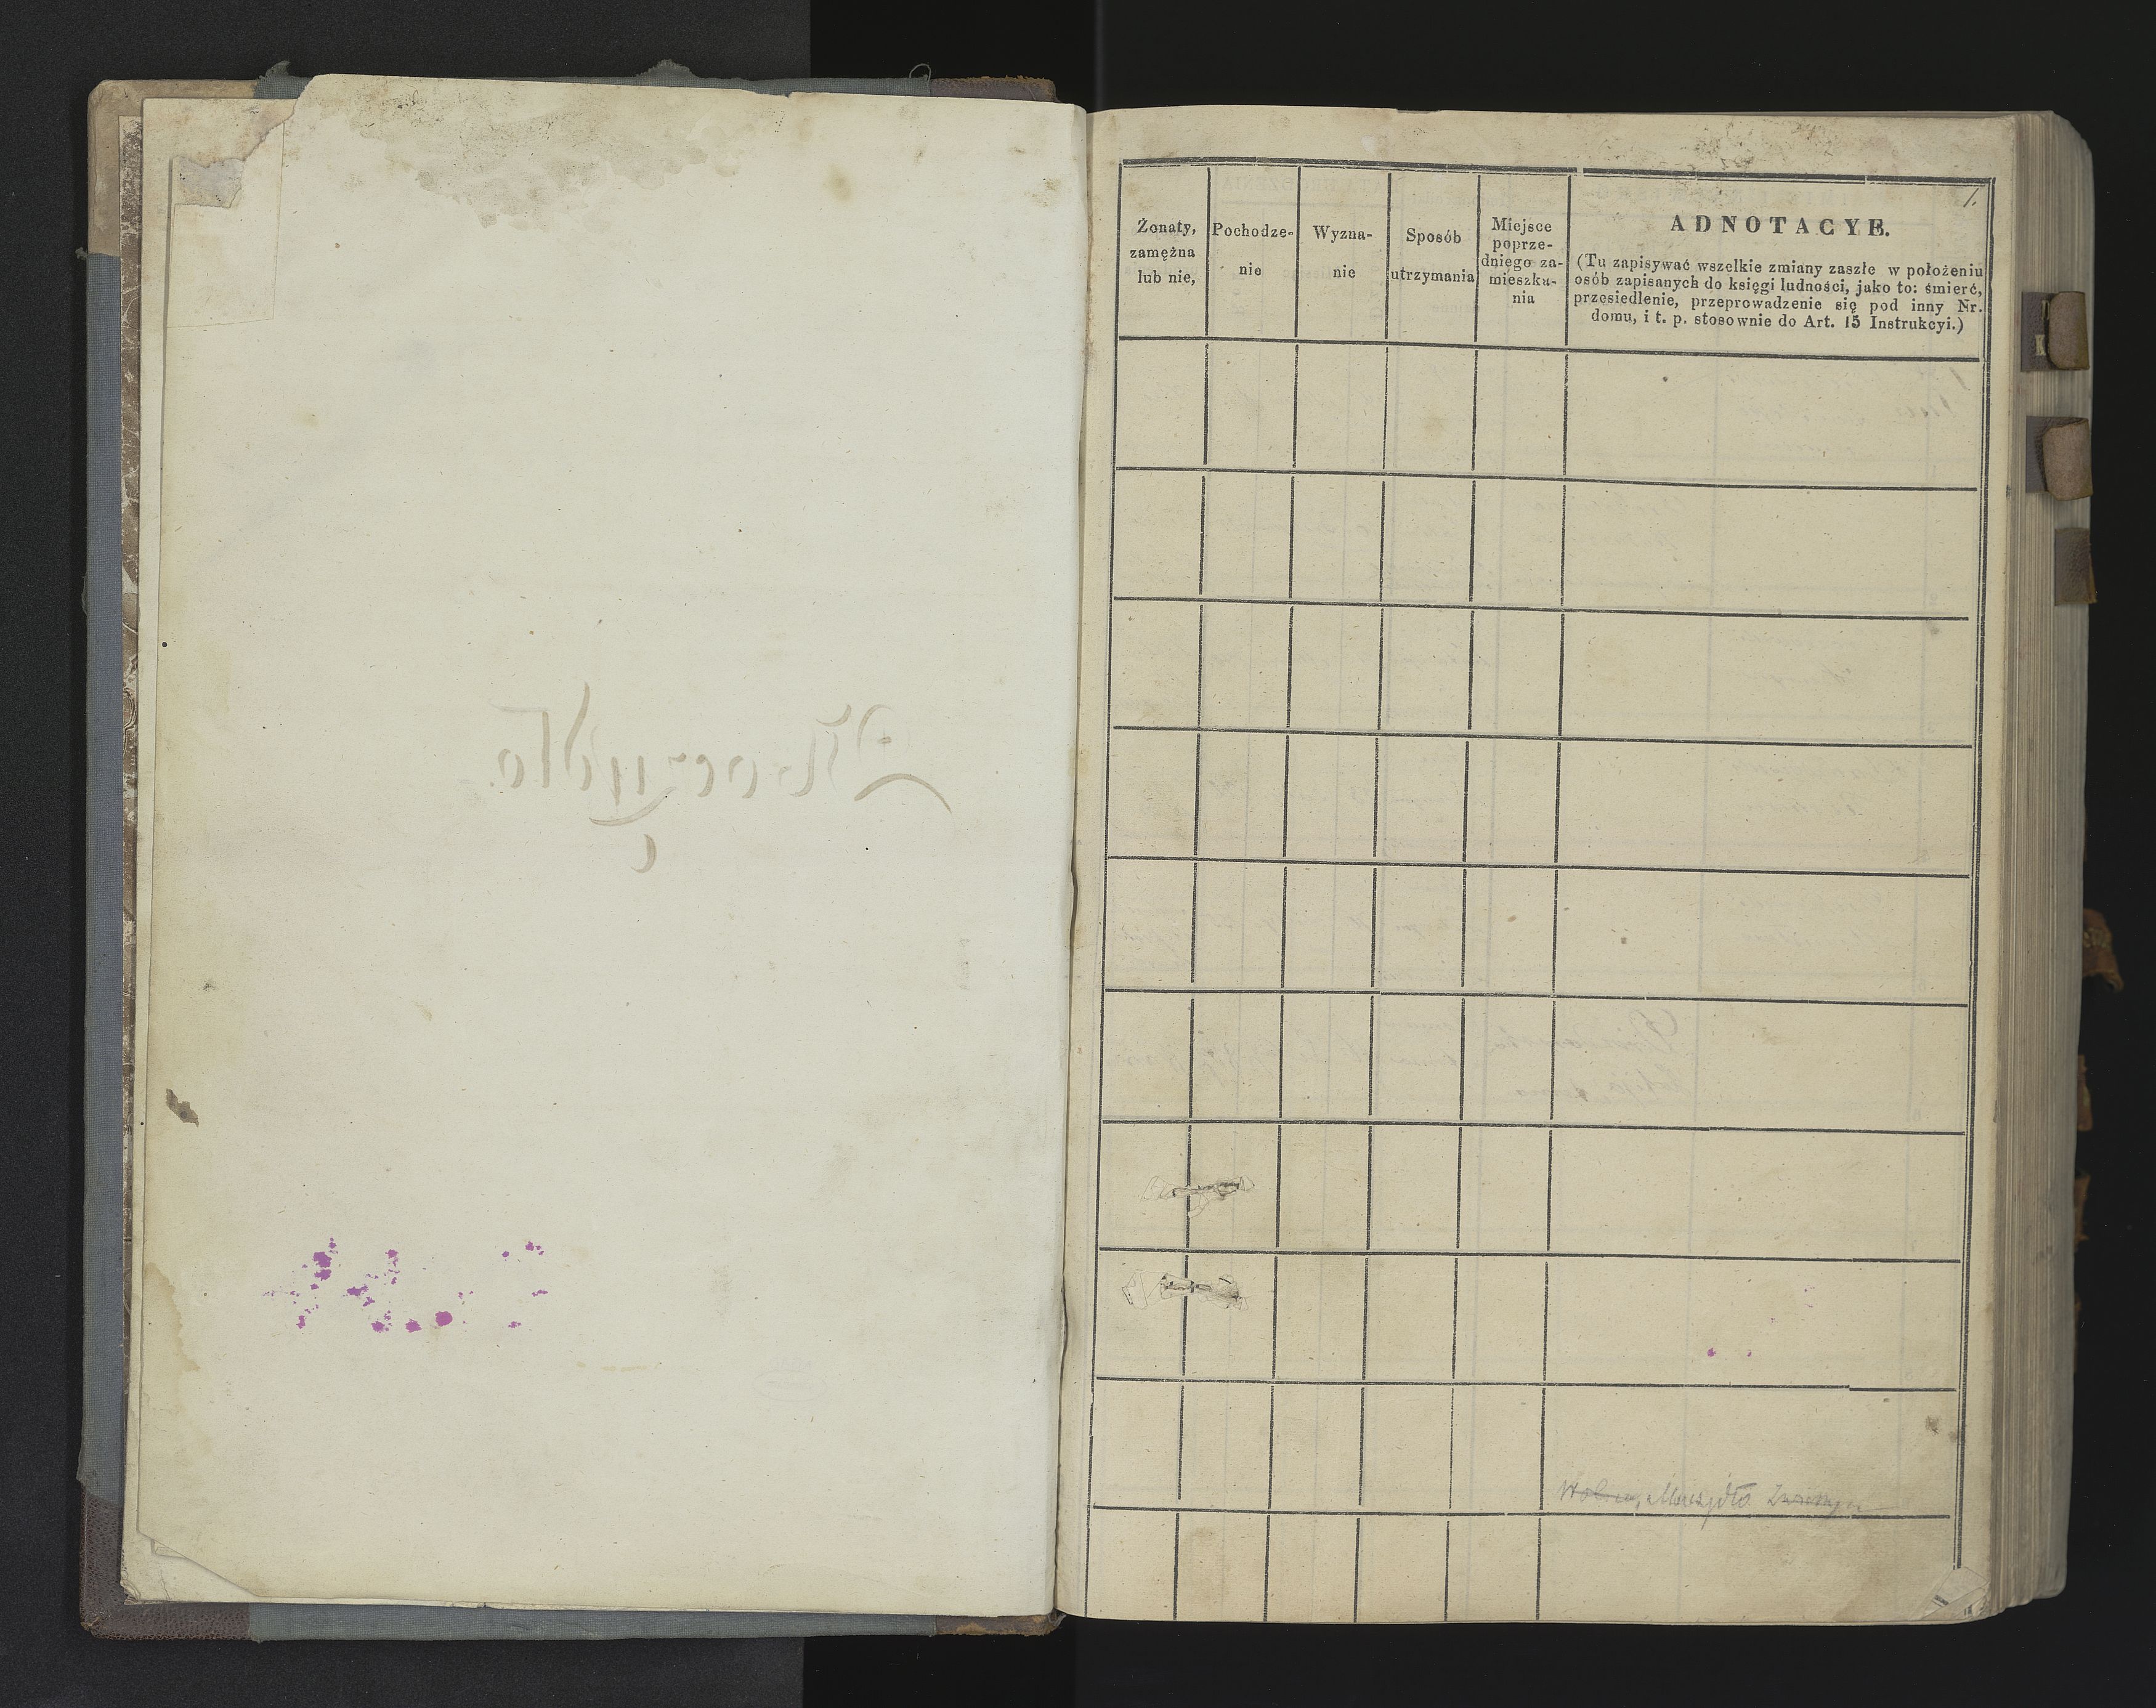 1.
Żonaty,
zamężna
lub nie,
Pochodze-
nie
Wyzna-
nie
Sposób
utrzymania
Miejsce
poprze-
dniego za-
mieszka-
nia
ADNOTACYE.
(Tu zapisywać wszelkie zmiany zaszłe w położeniu
osób zapisanych do księgi ludności, jako to: śmierć,
przesiedlenie, przeprowadzenie się pod inny Nr.
domu, i t. p. stosownie do Art. 15 Instrukcyi.)